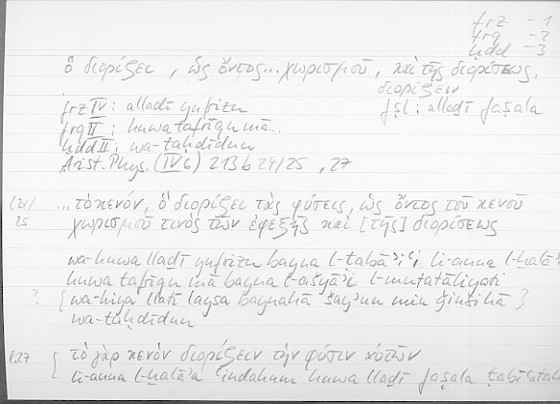 frz - 1
frq - 2
ḥdd - 3
ὃ διορίζει, ὡς ὄντος... χωρισμοῦ, καὶ τῆς διορίσεως,
διορίζειν
frz IV: alladī yufrizu
fṣl: alladī faṣala
frq II: huwa tafrīqu mā..
ḥdd II: wa-taḥdīdun
Arist. Phys. (IV 6) 213b 24/25, 27
(24/
25
... τὸ κενόν, ὃ διορίζει τὰς φύσεις, ὡς ὄντος τοῦ κενοῦ
χωρισμοῦ τινὸς τῶν ἐφεξῆς καὶ [τῆς] διορίσεως
wa-huwa lladī yufrizu bayna l-ṭabāʾiʿi li-anna l-ḫalāʾ
huwa tafrīqu mā bayna l-ašyāʾi l-mutatāliyati
? {wa-hiya llatī laysa baynahā šayʾun min ǧinsihā}
wa-taḥdīdun
b27 { τὸ γὰρ κενὸν διορίζειν τὴν φύσιν αὐτῶν
li-anna l-ḫalāʾa ʿindahum huwa lladī faṣala